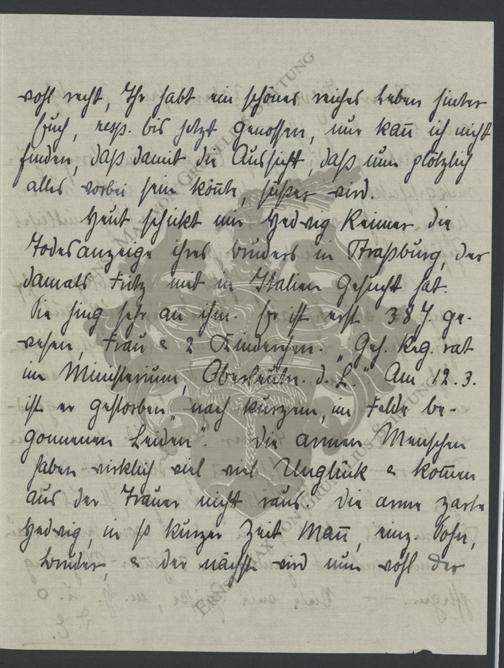 wohl recht, Ihr habt ein schönes reiches Leben hinter
Euch, resp. bis jetzt genossen, nur kan̄ ich nicht
finden, daß damit die Aussicht, daß nun plötzlich
alles vorbei sein kön̄te, süßer wird.
Heut schickt mir Hedwig Reimer die
Todesanzeige ihres Bruders in Straßburg, der
damals Fritz mit in Italien gesucht hat.
Sie hing sehr an ihm. Er ist erst 38 J. ge-
wesen, Frau & 2 Kinderchen. "Geh. Reg. rat
im Ministerium, Oberleutn. d. L." Am 12.3.
ist er gestorben "nach kurzem, im Felde be-
gonnenen Leiden". Die armen Menschen
haben wirklich viel viel Unglück & kom̄en
aus der Trauer nicht raus. Die arme zarte
Hedwig, in so kurzer Zeit Man̄, einz. Sohn,
Bruder, & der nächste wird nun wohl der